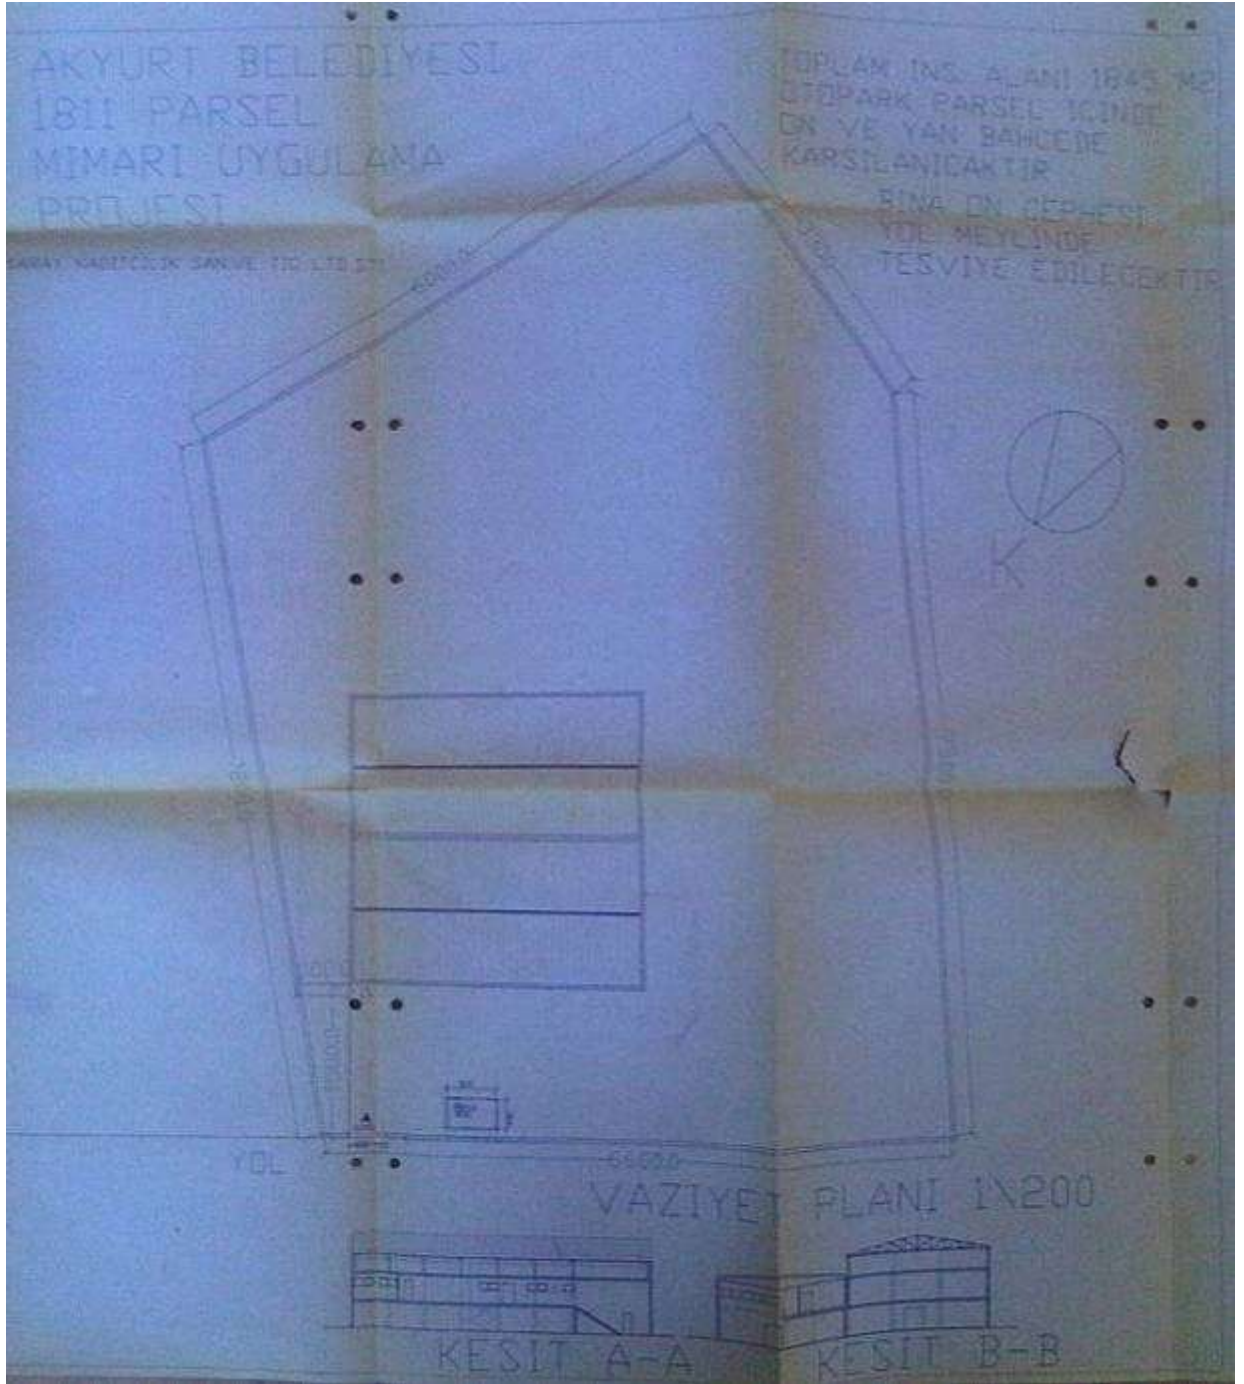 AKYURT BELEDIYESI
1811 PARSEL
MIMARI UYGULAMA
PROJESI
SAN.VE TIC LTD STI
TOPLAM INS. ALANI 1845 M2
OTOPARK PARSEL ICINDE
ON VE YAN BAHCEDE
KARSILANICAKTIR
BINA ON CEPHESI
YOL MEYLINDE
TESVIYE EDILECEKTIR
K
YOL
6500.0
VAZIYET PLANI 1\200
KESIT A-A
KESIT B-B